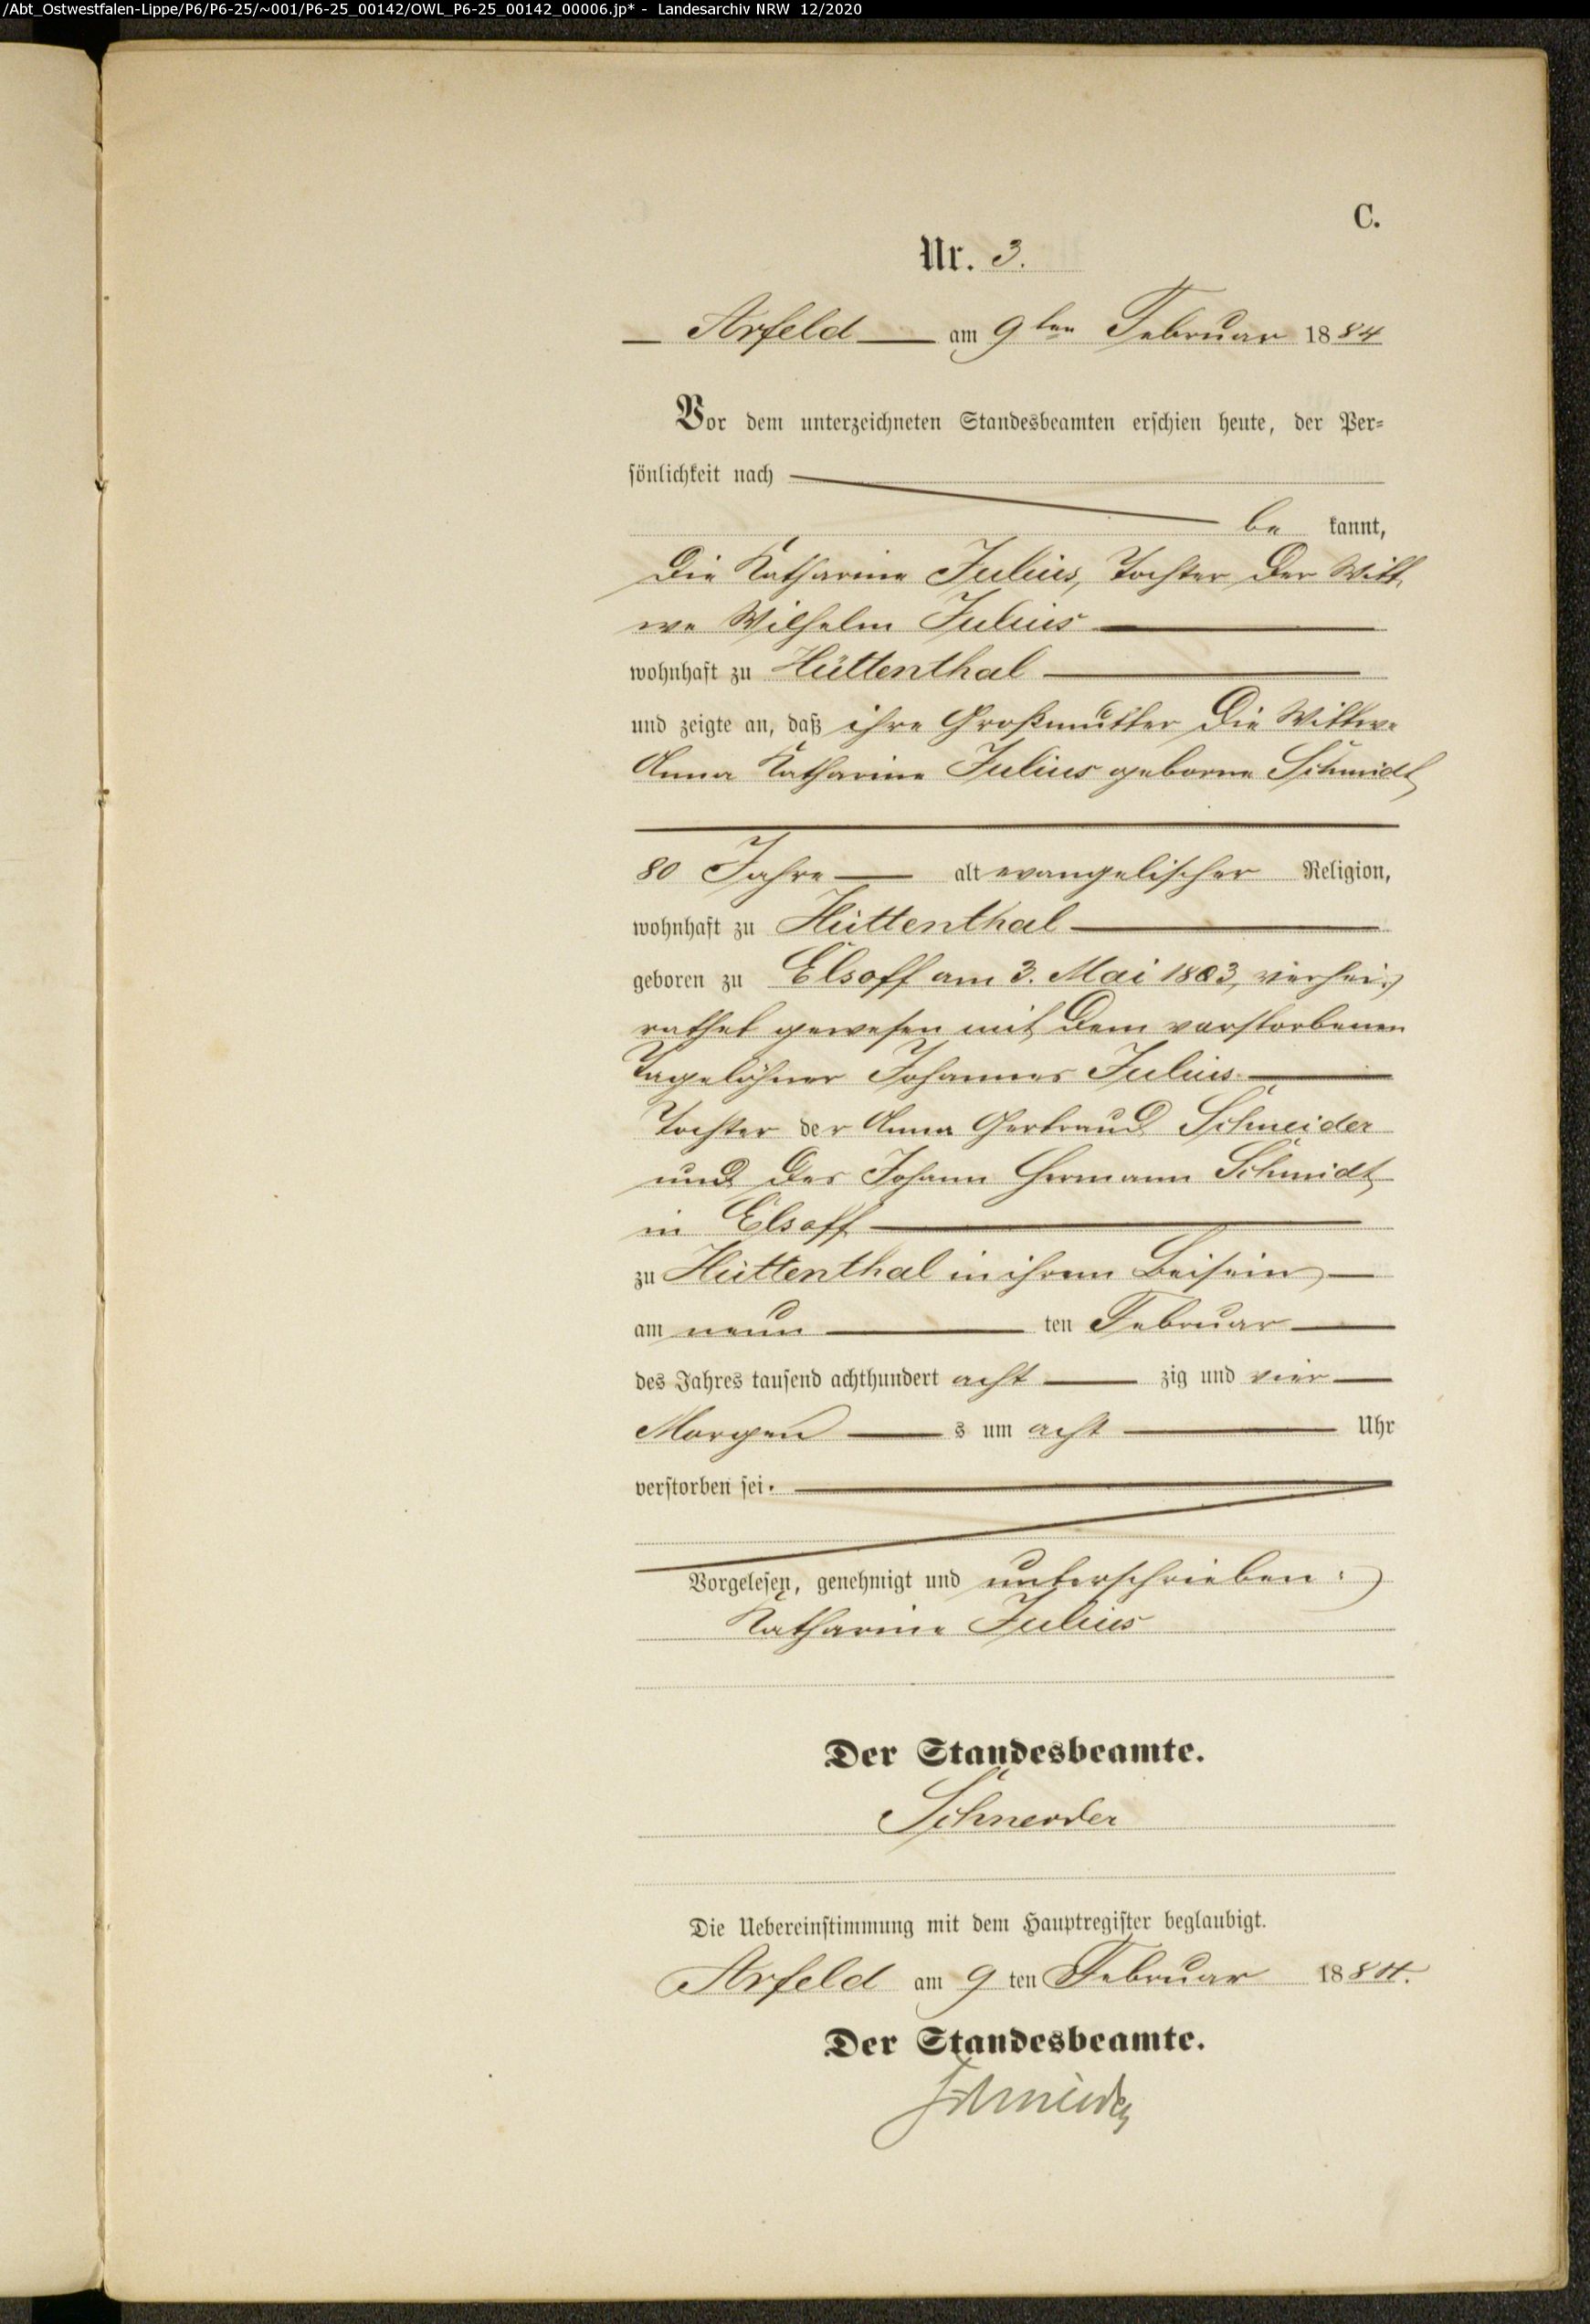 /Abt_Ostwestfalen-Lippe/P6/P6-25/~001/P6-25_00142/OWL_P6-25_00142_00006.jp* - Landesarchiv NRW 12/2020
C.
Nr. 3.
Arfeld am 9ten Februar 1884
Vor dem unterzeichneten Standesbeamten erschien heute, der Per-
sönlichkeit nach
be kannt,
die Katharine Julius, Tochter der Witt,
we Wilhelm Julius
wohnhaft zu Hüttenthal
und zeigte an, daß ihre Großmutter die Wittwe
Anna Katharine Julius geborne Schmidt
80 Jahre alt evangelischer Religion,
wohnhaft zu Hüttenthal
geboren zu Elsoff am 3. Mai 1803, verhei-
rathet gewesen mit dem verstorbenen
Tagelöhner Johannes Julius
Tochter der Anna Gertraud Schneider
und des Johann Hermann Schmidt
in Elsoff
zu Hüttenthal in ihrem Beisein
am neun ten Februar
des Jahres tausend achthundert acht zig und vier
Morgen s um acht Uhr
verstorben sei.
Vorgelesen, genehmigt und unterschrieben:
Katharine Julius
Der Standesbeamte.
Schneider
Die Uebereinstimmung mit dem Hauptregister beglaubigt.
Arfeld am 9 ten Februar 1884.
Der Standesbeamte.
Schneider